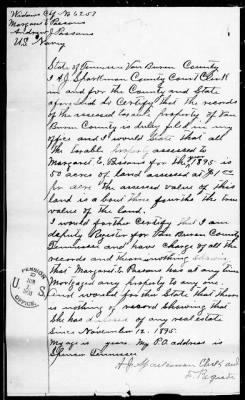 Widows Ctf No 6257
Margaret E Parsons
Andrew J Parsons
U.S. Navy
State of Tennessee Van Buren County
I A.J. Sparkman County Court Clerk
in and for the County and State
aforesaid do Certify that the records
of the assessed taxable property of Van
Buren County is duly filed in my
office and I would state that all
the taxable property assessed to
Margaret E. Parsons for the 1895 is
50 acres of land assessed at $1.00
per acre the assessed value of this
land is about three fourths the true
value of the land.
I would further Certify that I am
deputy Register for Van Buren County
Tennessee and have charge of all the
records and there is nothing showing
that Margaret E Parsons has at any time
Mortgaged any property to any one.
And would further State that there
is nothing of record showing that
She has of any real estate
since November 12. 1895.
my age is years. My P.O. address is
Spencer Tennessee
A J Sparkman Clerk and
D. Register
PENSION
U.S.
OFFICE